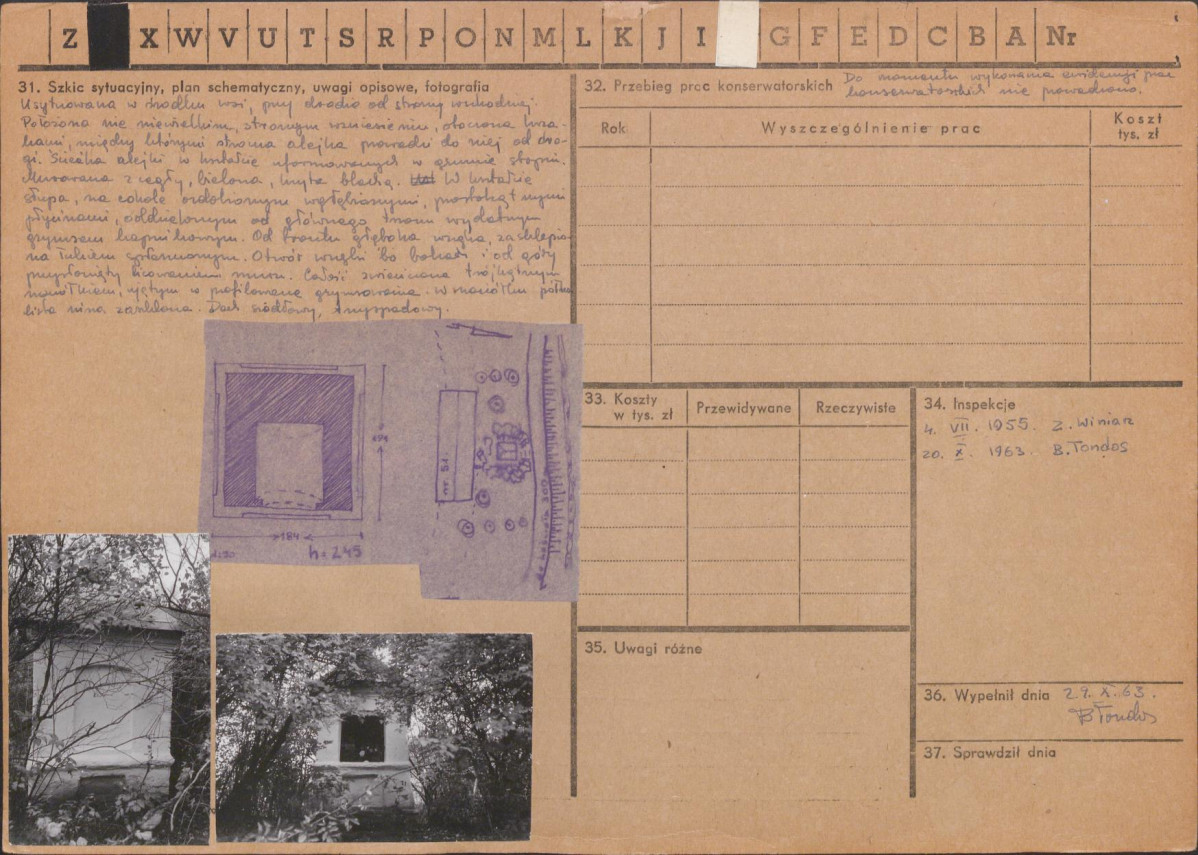 Z X W V U T S R P O N M L K J I G F E D C B A Nr
31. Szkic sytuacyjny, plan schematyczny, uwagi opisowe, fotografia
Usytuowana w środku wsi, przy drodze od strony wschodniej.
Położona na niewielkim, stromym wzniesieniu, otoczona krza-
kami, między którymi stroma alejka prowadzi do niej od dro-
gi. Ścieżka alejki w kształcie uformowanych w gruncie stopni.
Murowana z cegły, bielona, kryta blachą. W kształcie
słupa, na cokole ozdobionym wgłębionymi, prostokątnymi
płycinami, oddzielonym od głównego trzonu wydatnym
gzymsem kapnikowym. Od frontu głęboka wnęka, zasklepio-
na łukiem spłaszczonym. Otwór wnęki po bokach i od góry
przysłonięty licowaniem muru. Całość zwieńczona trójkątnym
szczytkiem, ujętym w profilowane gzymsowania. W
nisza zasklepiona. Dach siodłowy, dwuspadowy.
494
184
1:50
h= 245
nr. 51.
32. Przebieg prac konserwatorskich
Do momentu wykonania ewidencji prac
konserwatorskich nie prowadzono.
Rok
Wyszczególnienie prac
Koszt
tys. zł
33. Koszty
w tys. zł
Przewidywane
Rzeczywiste
34. Inspekcje
4. VII. 1955. Z. Winiarz
20. X. 1963. B. Tondos
35. Uwagi różne
36. Wypełnił dnia 29. X. 63.
B Tondos
37. Sprawdził dnia